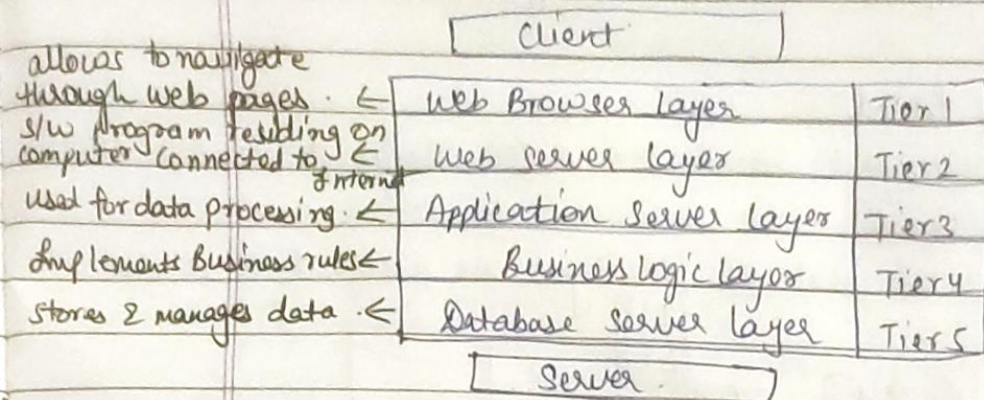 Client
allows to navigate
through web pages. ← Web Browser Layer Tier 1
S/W program residing on
computer connected to ← Web server layer Tier 2
Internet
used for data processing. ← Application Server Layer Tier 3
Implements Business rules ← Business Logic layer Tier 4
Stores & manages data. ← Database Server Layer Tier 5
Server.